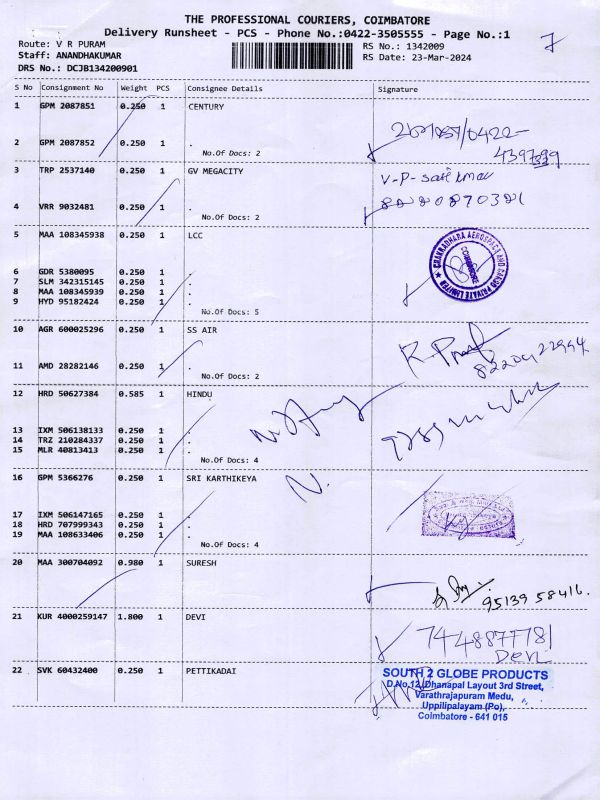 THE PROFESSIONAL COURIERS, COIMBATORE
Delivery Runsheet - PCS - Phone No.:0422-3505555 - Page No.:1
7
Route: V R PURAM
RS No.: 1342009
Staff: ANANDHAKUMAR
RS Date: 23-Mar-2024
DRS No.: DCJB134200901
S No Consignment No Weight PCS Consignee Details Signature
1 GPM 2087851 0.250 1 CENTURY
2 GPM 2087852 0.250 1 .
No.Of Docs: 2
3 TRP 2537140 0.250 1 GV MEGACITY
4 VRR 9032481 0.250 1 .
No.Of Docs: 2
5 MAA 108345938 0.250 1 LCC
CHAKRADHARA AEROSPACE AND CARGO PRIVATE LIMITED
6 GDR 5380095 0.250 1 .
7 SLM 342315145 0.250 1 .
8 MAA 108345939 0.250 1 .
9 HYD 95182424 0.250 1 .
No.Of Docs: 5
10 AGR 600025296 0.250 1 SS AIR
11 AMD 28282146 0.250 1 .
No.Of Docs: 2
12 HRD 50627384 0.585 1 HINDU
13 IXM 506138133 0.250 1 .
14 TRZ 210284337 0.250 1 .
15 MLR 40813413 0.250 1 .
No.Of Docs: 4
16 GPM 5366276 0.250 1 SRI KARTHIKEYA
17 IXM 506147165 0.250 1 .
18 HRD 707999343 0.250 1 .
19 MAA 108633406 0.250 1 .
No.Of Docs: 4
20 MAA 300704092 0.980 1 SURESH
95139 58416.
21 KUR 4000259147 1.800 1 DEVI
7448877781
Devi
22 SVK 60432400 0.250 1 PETTIKADAI
SOUTH 2 GLOBE PRODUCTS
D.No.12, Dhanapal Layout 3rd Street,
Varathrajapuram Medu,
Uppilipalayam (Po),
Coimbatore - 641 015